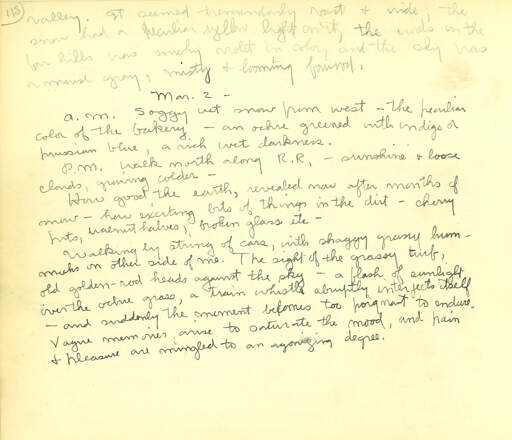 113
valley. It seemed tremendously vast & wide; the
snow had a peculiar yellow light on it, the woods in the
far hills was smoky violet in color, and the sky was
a mouse gray, misty & looming forward.
Mar. 2 -
a.m. Soggy wet snow from west - the peculiar
color of the bakery - an ochre greened with indigo or
prussian blue, a rich wet darkness.
P.M. walk north along R.R., - sunshine & loose
clouds, growing colder -
How good the earth, revealed now after months of
snow - how exciting bits of things in the dirt - cherry
pits, walnut halves, broken glass etc -
Walking by string of cars, with shaggy grassy hum-
mocks on other side of me. The sight of the grassy turf,
old golden-rod heads against the sky - a flash of sunlight
over the ochre grass, a train whistle abruptly interjects itself
- and suddenly the moment becomes too poignant to endure.
Vague memories arise to saturate the mood, and pain
& pleasure are mingled to an agonizing degree.